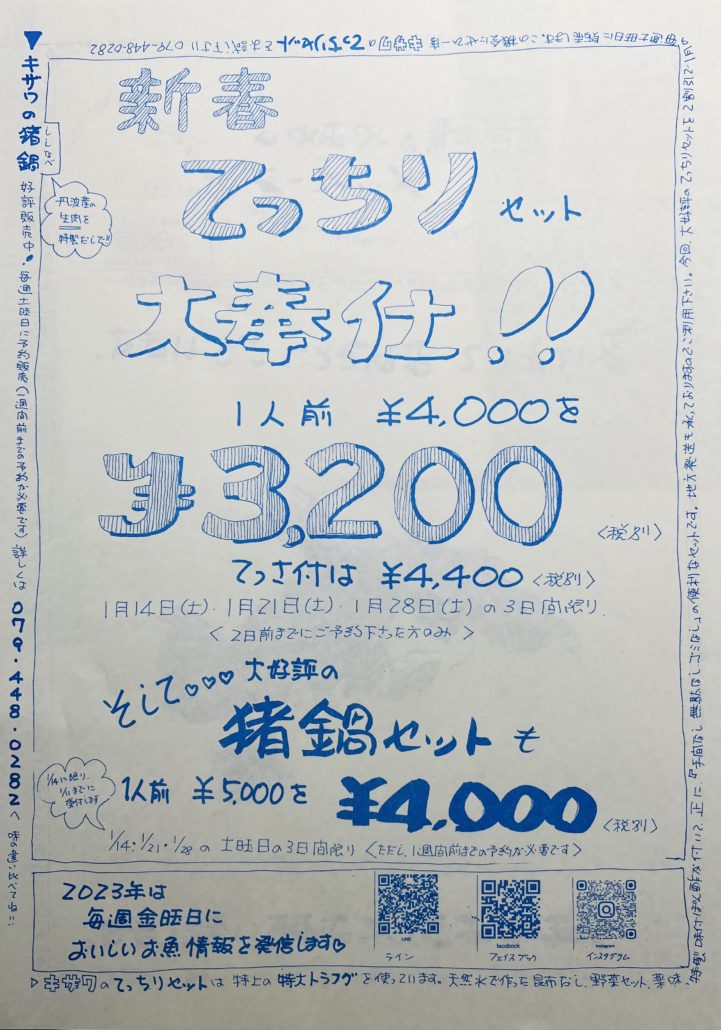 新春
てっちり セット
大奉仕!!
1人前 ¥4,000を
¥3,200 〈税別〉
てっさ付は ¥4,400〈税別〉
1月14日(土)・1月21日(土)・1月28日(土)の3日間限り
〈2日前までにご予約下さった方のみ〉
そして♡♡♡大好評の
猪鍋セットも
1/14に限り、
1/11までに
受付します
1人前 ¥5,000を ¥4,000〈税別〉
1/14・1/21・1/28の土曜日の3日間限り〈ただし、1週間前までの予約が必要です〉
2023年は
毎週金曜日に
おいしいお魚情報を発信します♡
LINE
ライン
facebook
フェイスブック
Instagram
インスタグラム
▼キサワの猪鍋 好評販売中!毎週土曜日に予約販売(一週間前までの予約が必要です)詳しくは 079・448・0282へ 味の違い比べてね
ししなべ
丹波産の
生肉を
特製だしで!!
▷キサワのてっちりセットは特上の特大トラフグを使っています。天然水で作った昆布だし、野菜セット、薬味、
特製味付ぽん酢が付いて、正に、『手間なし 無駄なし ゴミなし』の便利なセットです。地方発送も承っておりますのでご利用下さい。今回、大好評のてっちりセットを2割引で1月の
毎週土曜日に販売します。この機会にぜひ一度キサワのてっちりセットをお試し下さい 079-448-0282